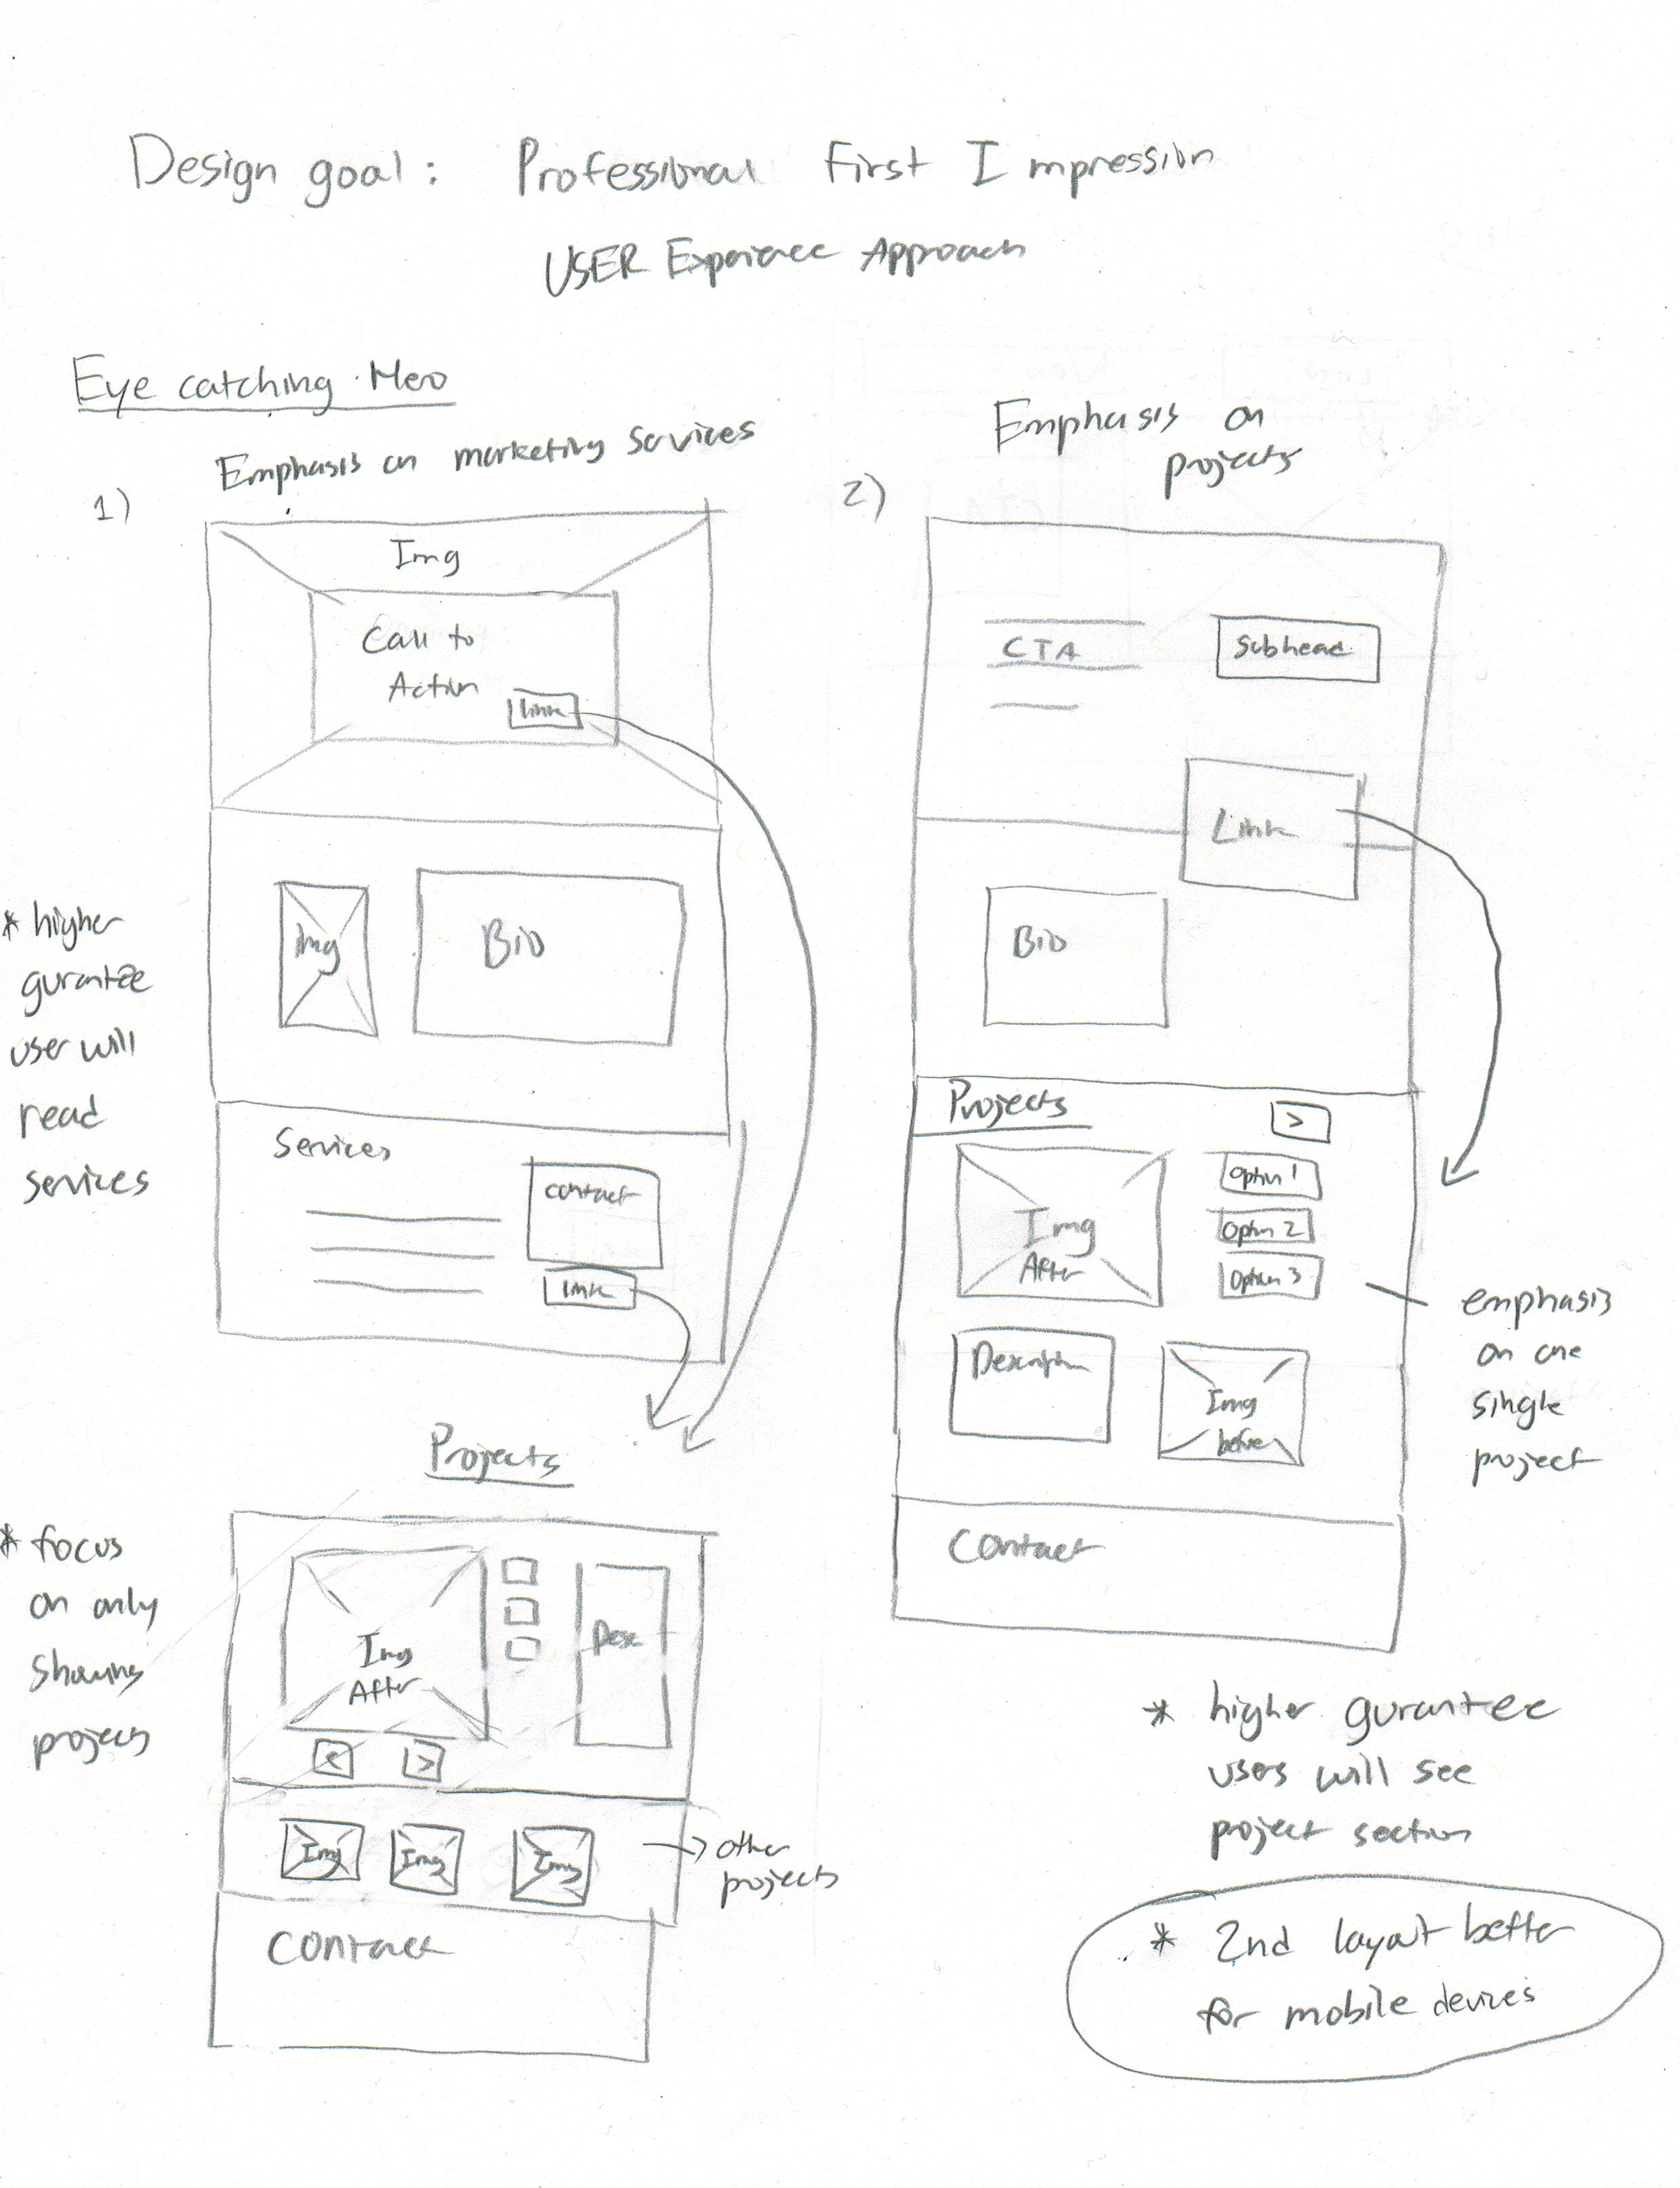 Design goal: Professional First Impression
USER Experience Approach
Eye catching Hero
Emphasis on marketing Services
1)
Img
Call to
Action
link
* higher
gurantee
user will
read
services
Img
Bio
Services
contact
link
Projects
* focus
on only
showing
projects
Img
After
Desc
<
>
Img
Img
Img
→ other
projects
Contact
Emphasis on
projects
2)
CTA
Subhead
Link
Bio
Projects
>
Img
After
Option 1
Option 2
Option 3
emphasis
on one
single
project
Description
Img
before
Contact
* higher gurantee
users will see
project section
* 2nd layout better
for mobile devices